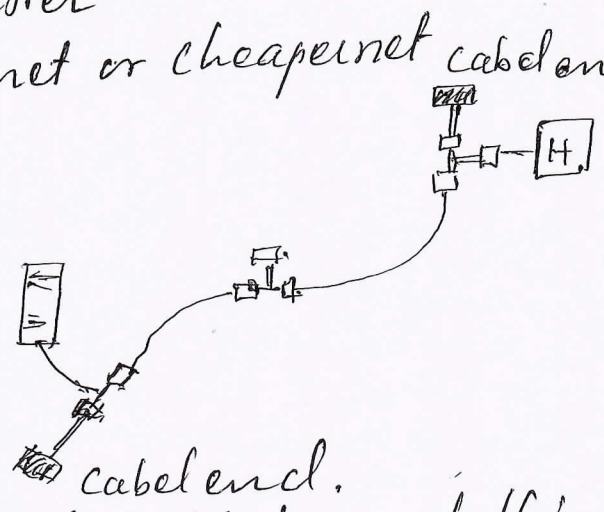 net or cheapernet cabel en
H
cabel end.